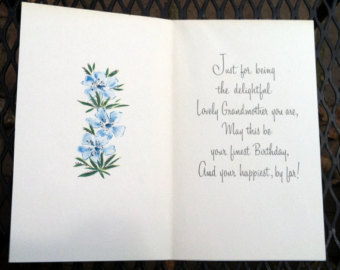 Just for being
the delightful
Lovely Grandmother you are,
May this be
your finest Birthday,
And your happiest, by far!